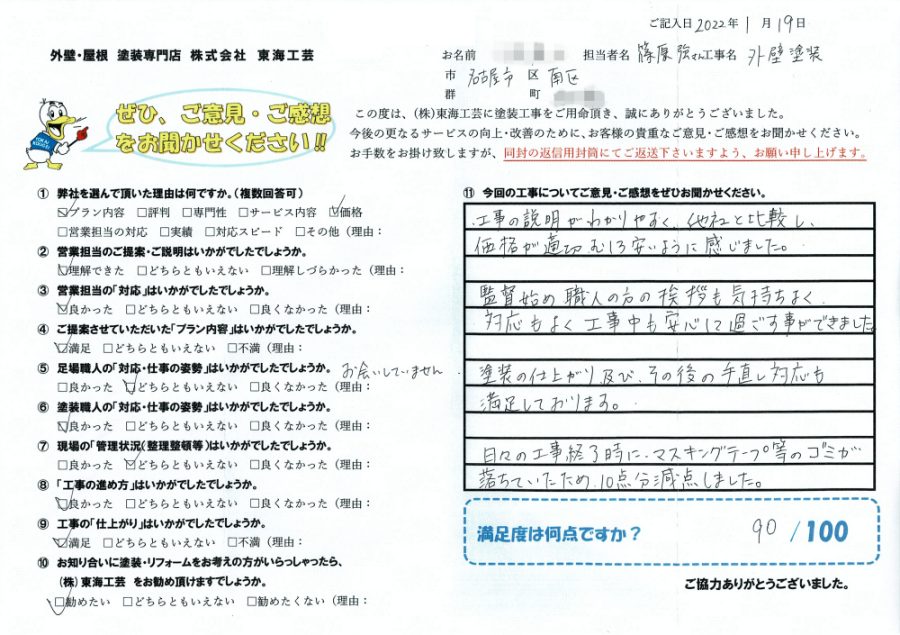 ご記入日 2022年 1月 19日
外壁・屋根 塗装専門店 株式会社 東海工芸
お名前 担当者名 篠原 強さん 工事名 外壁塗装
市 名古屋市 区 南区
郡 町
ぜひ、ご意見・ご感想
をお聞かせください!!
この度は、(株)東海工芸に塗装工事をご用命頂き、誠にありがとうございました。
今後の更なるサービスの向上・改善のために、お客様の貴重なご意見・ご感想をお聞かせください。
お手数をお掛け致しますが、同封の返信用封筒にてご返送下さいますよう、お願い申し上げます。
① 弊社を選んで頂いた理由は何ですか。(複数回答可)
☑プラン内容 □評判 □専門性 □サービス内容 ☑価格
□営業担当の対応 □実績 □対応スピード □その他(理由:
② 営業担当のご提案・ご説明はいかがでしたでしょうか。
☑理解できた □どちらともいえない □理解しづらかった(理由:
③ 営業担当の「対応」はいかがでしたでしょうか。
☑良かった □どちらともいえない □良くなかった(理由:
④ ご提案させていただいた「プラン内容」はいかがでしたでしょうか。
☑満足 □どちらともいえない □不満(理由:
⑤ 足場職人の「対応・仕事の姿勢」はいかがでしたでしょうか。 お会いしていません
□良かった ☑どちらともいえない □良くなかった(理由:
⑥ 塗装職人の「対応・仕事の姿勢」はいかがでしたでしょうか。
☑良かった □どちらともいえない □良くなかった(理由:
⑦ 現場の「管理状況(整理整頓等)はいかがでしたでしょうか。
□良かった ☑どちらともいえない □良くなかった(理由:
⑧ 「工事の進め方」はいかがでしたでしょうか。
☑良かった □どちらともいえない □良くなかった(理由:
⑨ 工事の「仕上がり」はいかがでしたでしょうか。
☑満足 □どちらともいえない □不満(理由:
⑩ お知り合いに塗装・リフォームをお考えの方がいらっしゃったら、
(株)東海工芸 をお勧め頂けますでしょうか。
☑勧めたい □どちらともいえない □勧めたくない(理由:
⑪ 今回の工事についてご意見・ご感想をぜひお聞かせください。
工事の説明がわかりやすく、他社と比較し、
価格が適切むしろ安いように感じました。
監督始め職人の方の挨拶も気持ちよく
対応もよく工事中も安心して過ごす事ができました
塗装の仕上がり及び、その後の手直し対応も
満足しております。
日々の工事終了時に、マスキングテープ等のゴミが
落ちていたため、10点分減点しました。
満足度は何点ですか? 90 /100
ご協力ありがとうございました。